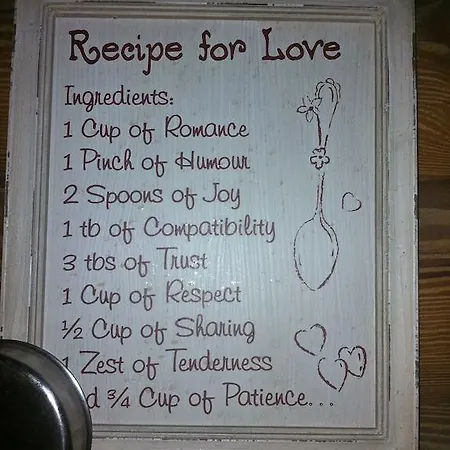 Recipe for Love
Ingredients:
1 Cup of Romance
1 Pinch of Humour
2 Spoons of Joy
1 tb of Compatibility
3 tbs of Trust
1 Cup of Respect
½ Cup of Sharing
1 Zest of Tenderness
¾ Cup of Patience...